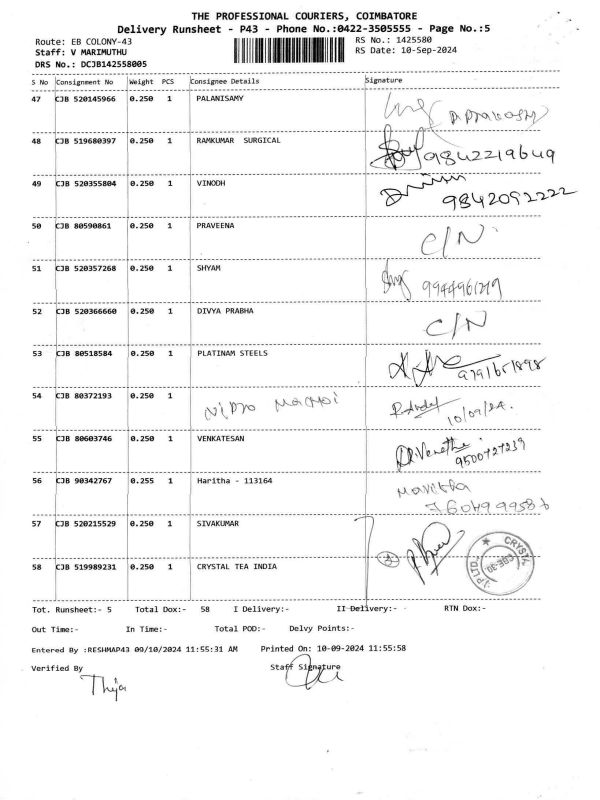 THE PROFESSIONAL COURIERS, COIMBATORE
Delivery Runsheet - P43 - Phone No.:0422-3505555 - Page No.:5
Route: EB COLONY-43 RS No.: 1425580
Staff: V MARIMUTHU RS Date: 10-Sep-2024
DRS No.: DCJB142558005
S No Consignment No Weight PCS Consignee Details Signature
47 CJB 520145966 0.250 1 PALANISAMY
48 CJB 519680397 0.250 1 RAMKUMAR SURGICAL 9842219649
49 CJB 520355804 0.250 1 VINODH 9842092222
50 CJB 80590861 0.250 1 PRAVEENA C/N
51 CJB 520357268 0.250 1 SHYAM
52 CJB 520366660 0.250 1 DIVYA PRABHA C/N
53 CJB 80518584 0.250 1 PLATINAM STEELS
54 CJB 80372193 0.250 1 10/09/24.
55 CJB 80603746 0.250 1 VENKATESAN 9500727239
56 CJB 90342767 0.255 1 Haritha - 113164
57 CJB 520215529 0.250 1 SIVAKUMAR
58 CJB 519989231 0.250 1 CRYSTAL TEA INDIA
Tot. Runsheet:- 5 Total Dox:- 58 I Delivery:- II Delivery:- RTN Dox:-
Out Time:- In Time:- Total POD:- Delvy Points:-
Entered By :RESHMAP43 09/10/2024 11:55:31 AM Printed On: 10-09-2024 11:55:58
Verified By Staff Signature